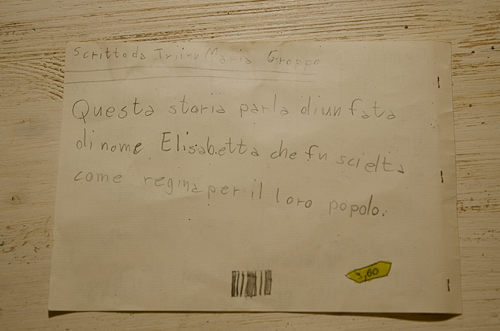 Scritto da Irina Maria Groppo
Questa storia parla di un fata
di nome Elisabetta che fu scielta
come regina per il loro popolo.
3,60